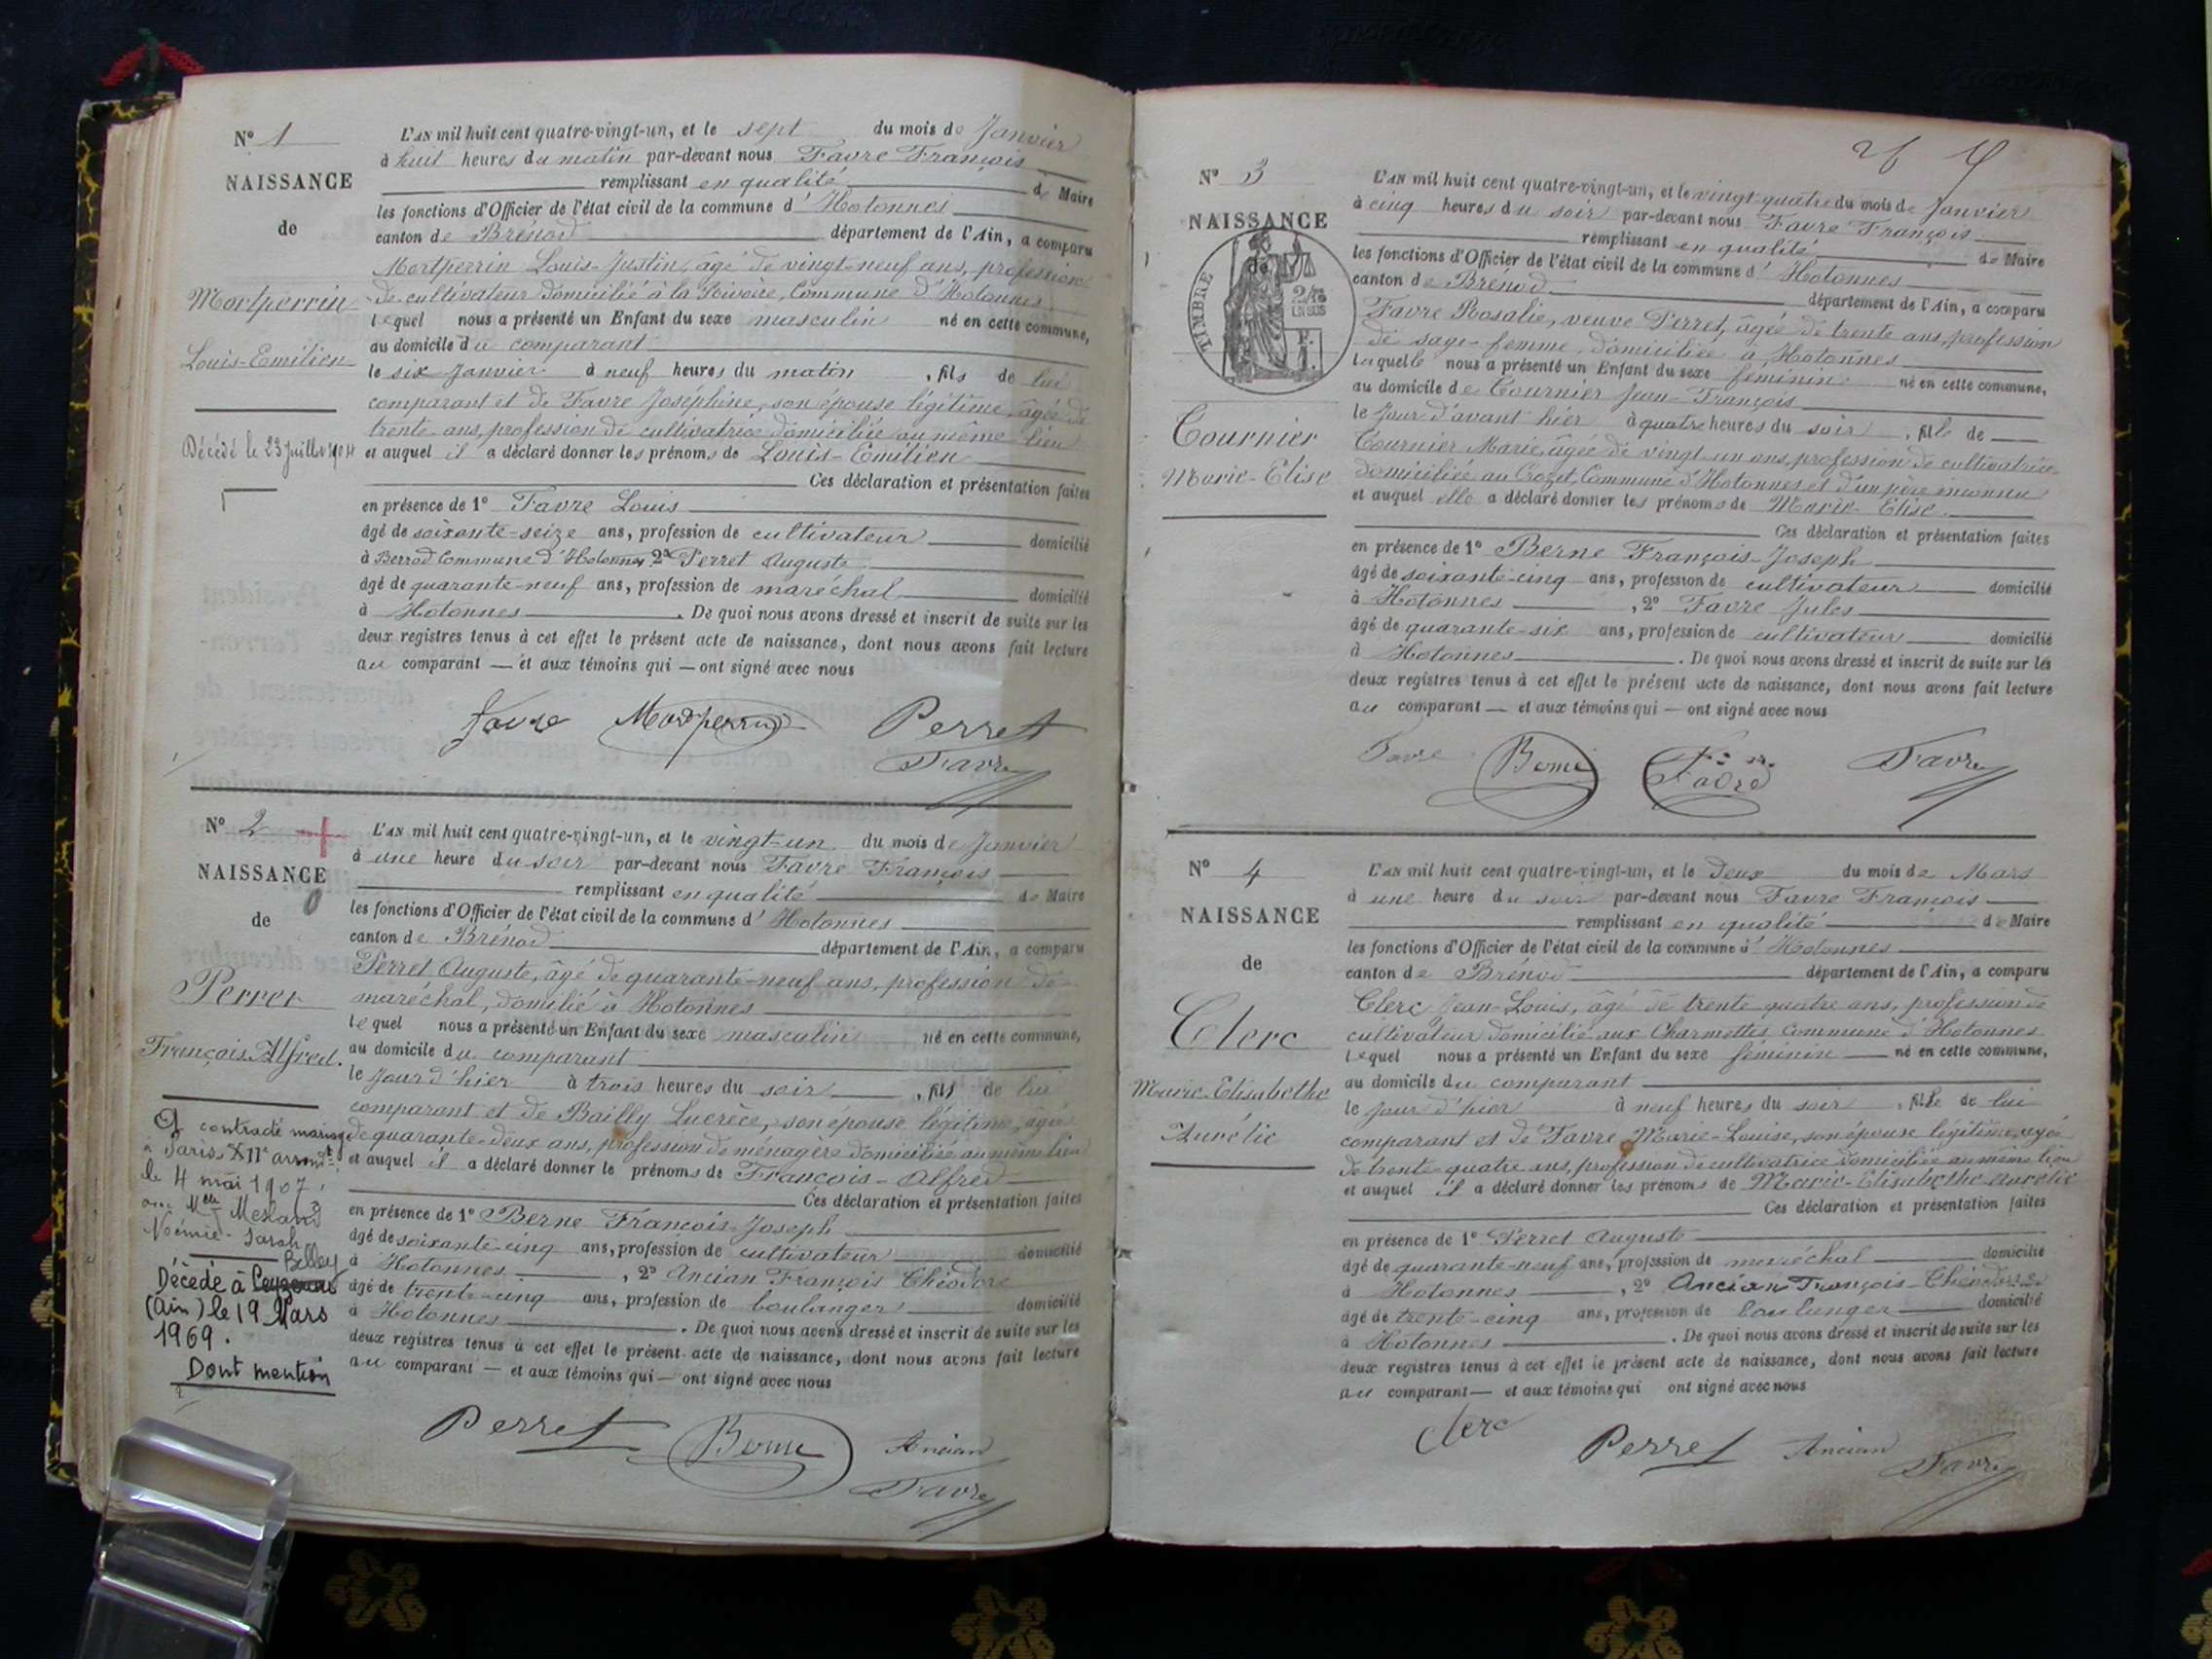 N° 1
NAISSANCE
de
Mortperrin
Louis-Emilien
Décédé le 23 Juillet
L'AN mil huit cent quatre-vingt-un, et le sept du mois de Janvier
à huit heures du matin par-devant nous Favre François
remplissant en qualité de Maire
les fonctions d'Officier de l'état civil de la commune d'Hotonnes
canton de Brénod département de l'Ain, a comparu
Mortperrin Louis-Justin, âgé de vingt-neuf ans, profession
de cultivateur domicilié à la Rivoire, Commune d'Hotonnes
lequel nous a présenté un Enfant du sexe masculin né en cette commune,
au domicile du comparant
le six Janvier à neuf heures du matin, fils de lui
comparant et de Favre Joséphine, son épouse légitime, âgée de
trente ans, profession de cultivatrice domiciliée au même lieu
et auquel il a déclaré donner les prénoms de Louis-Emilien
Ces déclaration et présentation faites
en présence de 1° Favre Louis
âgé de soixante-seize ans, profession de cultivateur domicilié
à Berrod Commune d'Hotonnes, 2° Perret Auguste
âgé de quarante-neuf ans, profession de maréchal domicilié
à Hotonnes. De quoi nous avons dressé et inscrit de suite sur les
deux registres tenus à cet effet le présent acte de naissance, dont nous avons fait lecture
au comparant — et aux témoins qui — ont signé avec nous
Favre Mortperrin Perret
Favre
N° 2
NAISSANCE
de
Perret
François-Alfred.
A contracté mariage
à Paris XIIe arrondt
le 4 mai 1907,
avec Melle
Noémie-Sarah
Belley
Décédé à
(Ain) le 19 Mars
1969.
Dont mention
L'AN mil huit cent quatre-vingt-un, et le vingt-un du mois de Janvier
à une heure du soir par-devant nous Favre François
remplissant en qualité de Maire
les fonctions d'Officier de l'état civil de la commune d'Hotonnes
canton de Brénod département de l'Ain, a comparu
Perret Auguste, âgé de quarante-neuf ans, profession de
maréchal, domilié à Hotonnes
lequel nous a présenté un Enfant du sexe masculin né en cette commune,
au domicile du comparant
le Jour d'hier à trois heures du soir, fils de lui
comparant et de Bailly Lucrèce, son épouse légitime, âgée
de quarante-deux ans, profession de ménagère domiciliée au même lieu
et auquel il a déclaré donner le prénoms de François-Alfred
Ces déclaration et présentation faites
en présence de 1° Berne François-Joseph
âgé de soixante-cinq ans, profession de cultivateur domicilié
à Hotonnes, 2° Ancian François Théodore
âgé de trente-cinq ans, profession de boulanger domicilié
à Hotonnes. De quoi nous avons dressé et inscrit de suite sur les
deux registres tenus à cet effet le présent acte de naissance, dont nous avons fait lecture
au comparant — et aux témoins qui — ont signé avec nous
Perret Berne Ancian
Favre
N° 3
NAISSANCE
de
TIMBRE
Tournier
Marie-Elise
L'AN mil huit cent quatre-vingt-un, et le vingt-quatre du mois de Janvier
à cinq heures du soir par-devant nous Favre François
remplissant en qualité de Maire
les fonctions d'Officier de l'état civil de la commune d'Hotonnes
canton de Brénod département de l'Ain, a comparu
Favre Rosalie, veuve Perret, âgée de trente ans, profession
de sage-femme, domiciliée à Hotonnes
laquelle nous a présenté un Enfant du sexe féminin né en cette commune,
au domicile de Tournier Jean-François
le Jour d'avant hier à quatre heures du soir, fille de
Tournier Marie, âgée de vingt-un ans, profession de cultivatrice
domiciliée au Crozet, Commune d'Hotonnes et d'un père inconnu
et auquel elle a déclaré donner les prénoms de Marie-Elise.
Ces déclaration et présentation faites
en présence de 1° Berne François-Joseph
âgé de soixante-cinq ans, profession de cultivateur domicilié
à Hotonnes, 2° Favre Jules
âgé de quarante-six ans, profession de cultivateur domicilié
à Hotonnes. De quoi nous avons dressé et inscrit de suite sur les
deux registres tenus à cet effet le présent acte de naissance, dont nous avons fait lecture
au comparant — et aux témoins qui — ont signé avec nous
Favre Berne Favre Favre
N° 4
NAISSANCE
de
Clerc
Marie-Elisabethe
Aurélie
L'AN mil huit cent quatre-vingt-un, et le Deux du mois de Mars
à une heure du soir par-devant nous Favre François
remplissant en qualité de Maire
les fonctions d'Officier de l'état civil de la commune d'Hotonnes
canton de Brénod département de l'Ain, a comparu
Clerc Jean-Louis, âgé de trente-quatre ans, profession de
cultivateur domicilié aux Charmettes Commune d'Hotonnes
lequel nous a présenté un Enfant du sexe féminin né en cette commune,
au domicile du comparant
le Jour d'hier à neuf heures du soir, fille de lui
comparant et de Favre Marie-Louise, son épouse légitime, âgée
de trente-quatre ans, profession de cultivatrice domiciliée au même lieu
et auquel il a déclaré donner les prénoms de Marie-Elisabethe-Aurélie
Ces déclaration et présentation faites
en présence de 1° Perret Auguste
âgé de quarante-neuf ans, profession de maréchal domicilié
à Hotonnes, 2° Ancian François-Théodore
âgé de trente-cinq ans, profession de boulanger domicilié
à Hotonnes. De quoi nous avons dressé et inscrit de suite sur les
deux registres tenus à cet effet le présent acte de naissance, dont nous avons fait lecture
au comparant — et aux témoins qui ont signé avec nous
Clerc Perret Ancian Favre